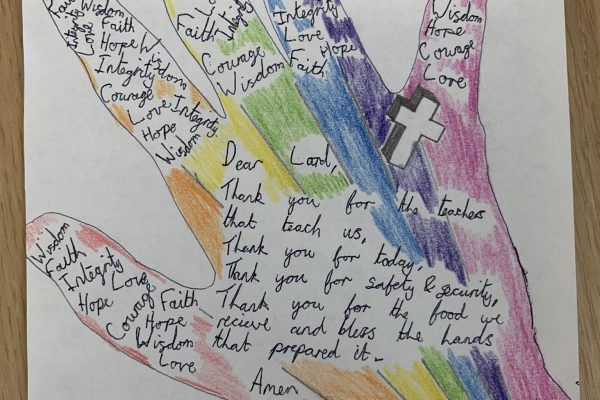 Faith Wisdom
Integrity Faith
Love
Hope Wisdom
Integrity
Courage
Love Integrity
Hope
Wisdom
Faith Integrity
Love
Courage
Wisdom
Integrity
Love
Hope
Faith
Wisdom
Hope
Courage
Love
Dear Lord,
Thank you for the teachers
that teach us,
Thank you for today,
Thank you for safety & security,
Thank you for the food we
recieve and bless the hands
that prepared it.
Amen
Wisdom
Faith
Integrity
Love
Hope
Courage Faith
Hope
Wisdom
Love